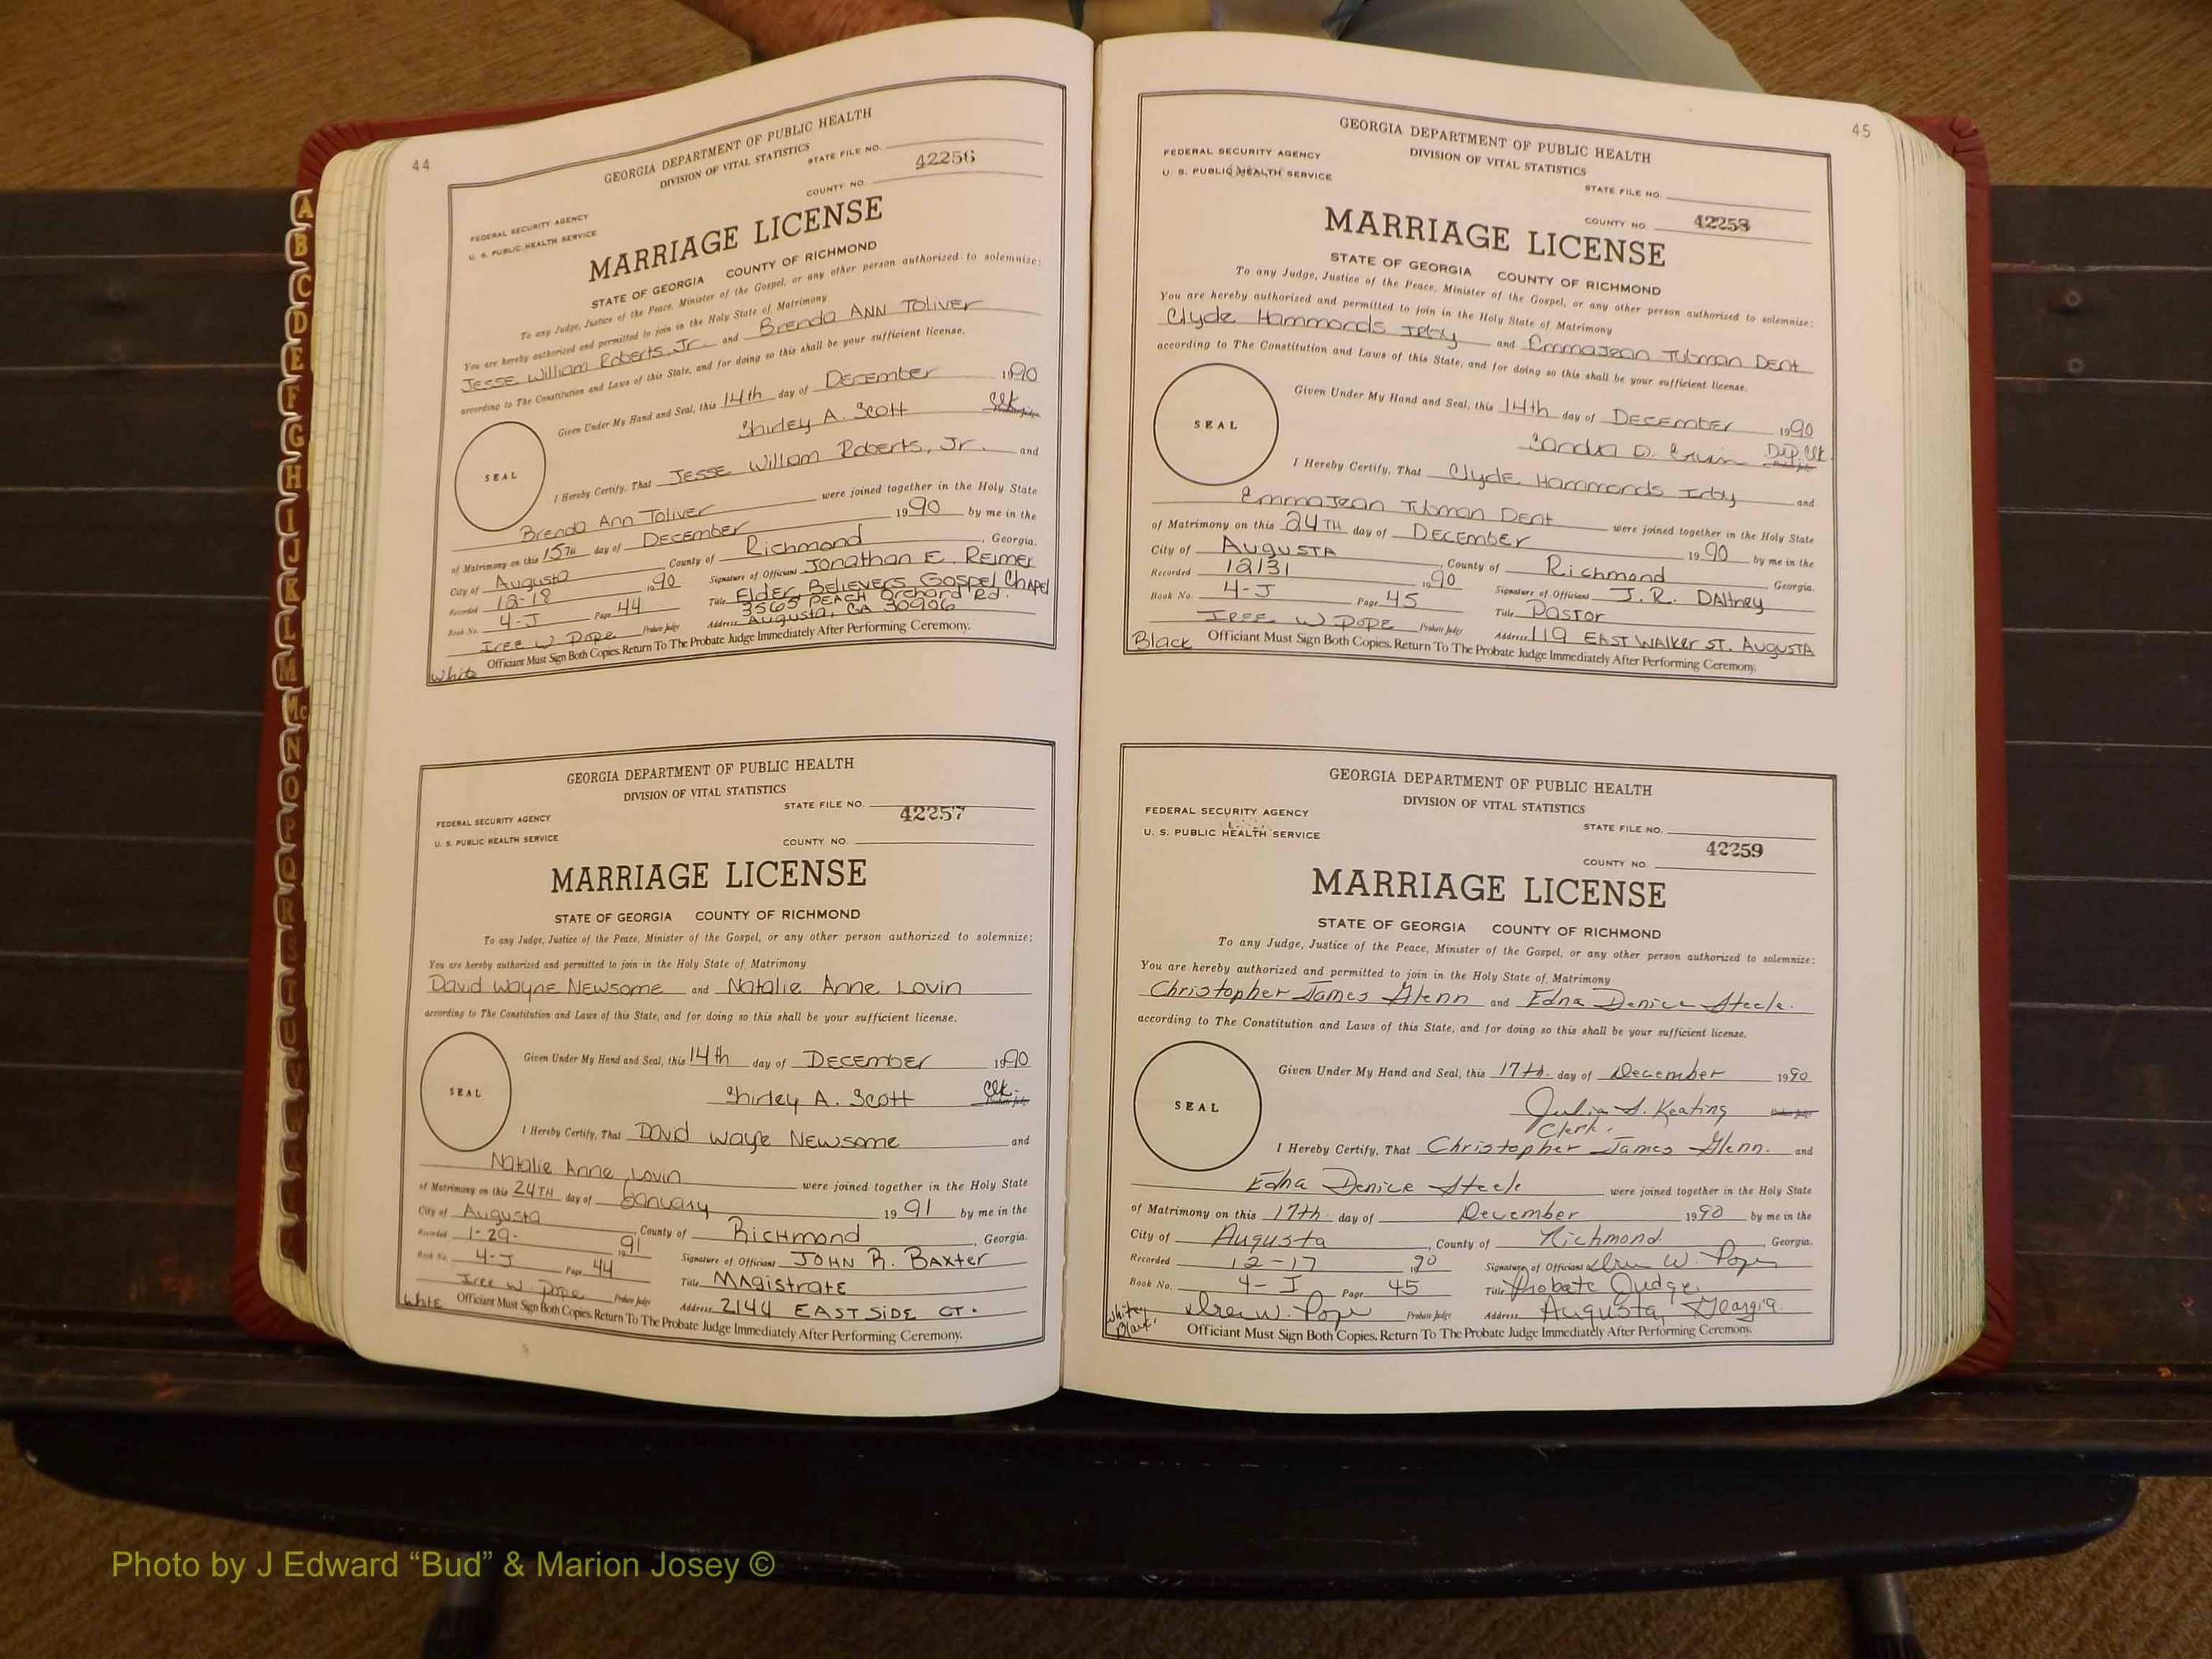 44
GEORGIA DEPARTMENT OF PUBLIC HEALTH
DIVISION OF VITAL STATISTICS
STATE FILE NO.
42256
COUNTY NO
FEDERAL SECURITY AGENCY
U. S. PUBLIC HEALTH SERVICE
MARRIAGE LICENSE
STATE OF GEORGIA COUNTY OF RICHMOND
To any Judge, Justice of the Peace, Minister of the Gospel, or any other person authorized to solemnize:
You are hereby authorized and permitted to join in the Holy State of Matrimony
Jesse William Roberts, Jr. and Brenda ANN Toliver
according to The Constitution and Laws of this State, and for doing so this shall be your sufficient license.
Given Under My Hand and Seal, this 14th day of December 1990
Shirley A. Scott Clk. Probate Judge
SEAL
I Hereby Certify, That Jesse Willam Roberts, Jr. and
Brenda Ann Toliver were joined together in the Holy State
of Matrimony on this 15TH day of December 1990 by me in the
City of Augusta, County of Richmond, Georgia.
Recorded 12-18 1990 Signature of Official Jonathan E. Reimer
Book No. 4-J Page 44 Title Elder, Believers Gospel Chapel
3565 PEACH Orchard Rd.
Iree W. Pope Probate Judge Address Augusta, GA 30906
Officiant Must Sign Both Copies. Return To The Probate Judge Immediately After Performing Ceremony.
White
GEORGIA DEPARTMENT OF PUBLIC HEALTH
DIVISION OF VITAL STATISTICS
STATE FILE NO.
42257
FEDERAL SECURITY AGENCY
U. S. PUBLIC HEALTH SERVICE
COUNTY NO.
MARRIAGE LICENSE
STATE OF GEORGIA COUNTY OF RICHMOND
To any Judge, Justice of the Peace, Minister of the Gospel, or any other person authorized to solemnize:
You are hereby authorized and permitted to join in the Holy State of Matrimony
David Wayne Newsome and Natalie Anne Lovin
according to The Constitution and Laws of this State, and for doing so this shall be your sufficient license.
Given Under My Hand and Seal, this 14th day of December 1990
Shirley A. Scott Clk. Probate Judge
SEAL
I Hereby Certify, That David Waye Newsome and
Natalie Anne Lovin were joined together in the Holy State
of Matrimony on this 24TH day of January 1991 by me in the
City of Augusta, County of Richmond, Georgia.
Recorded 1-29- 1991 Signature of Official JOHN R. Baxter
Book No. 4-J Page 44 Title Magistrate
Iree W. Pope Probate Judge Address 2144 EAST SIDE CT.
White Officiant Must Sign Both Copies. Return To The Probate Judge Immediately After Performing Ceremony.
45
GEORGIA DEPARTMENT OF PUBLIC HEALTH
DIVISION OF VITAL STATISTICS
FEDERAL SECURITY AGENCY
U. S. PUBLIC HEALTH SERVICE
STATE FILE NO.
COUNTY NO. 42258
MARRIAGE LICENSE
STATE OF GEORGIA COUNTY OF RICHMOND
To any Judge, Justice of the Peace, Minister of the Gospel, or any other person authorized to solemnize:
You are hereby authorized and permitted to join in the Holy State of Matrimony
Clyde Hammonds Irby and EmmaJean Tubman Dent
according to The Constitution and Laws of this State, and for doing so this shall be your sufficient license.
Given Under My Hand and Seal, this 14th day of December 1990
Sandra D. Dep. Clk. Probate Judge
SEAL
I Hereby Certify, That Clyde Hammonds Irby and
EmmaJean Tubman Dent were joined together in the Holy State
of Matrimony on this 24TH day of December 1990 by me in the
City of Augusta, County of Richmond Georgia.
Recorded 12/31 1990 Signature of Official J.R. Daltney
Book No. 4-J Page 45 Title Pastor
Iree W Pope Probate Judge Address 119 EAST WALKER ST. AUGUSTA
Black Officiant Must Sign Both Copies. Return To The Probate Judge Immediately After Performing Ceremony.
GEORGIA DEPARTMENT OF PUBLIC HEALTH
DIVISION OF VITAL STATISTICS
FEDERAL SECURITY AGENCY
U. S. PUBLIC HEALTH SERVICE
STATE FILE NO.
42259
COUNTY NO.
MARRIAGE LICENSE
STATE OF GEORGIA COUNTY OF RICHMOND
To any Judge, Justice of the Peace, Minister of the Gospel, or any other person authorized to solemnize:
You are hereby authorized and permitted to join in the Holy State of Matrimony
Christopher James Glenn and Edna Denice Steele.
according to The Constitution and Laws of this State, and for doing so this shall be your sufficient license.
Given Under My Hand and Seal, this 17th. day of December 1990
Julia S. Keating Probate Judge
Clerk.
SEAL
I Hereby Certify, That Christopher James Glenn. and
Edna Denice Steele were joined together in the Holy State
of Matrimony on this 17th. day of December 1990 by me in the
City of Augusta, County of Richmond, Georgia.
Recorded 12-17 1990 Signature of Official Iree W. Pope
Book No. 4-I Page 45 Title Probate Judge
Iree W. Pope Probate Judge Address Augusta, Georgia.
White Black Officiant Must Sign Both Copies. Return To The Probate Judge Immediately After Performing Ceremony.
A
B
C
D
E
F
G
H
I
J
K
L
M
Mc
N
O
P
Q
R
S
T
U
V
W
Photo by J Edward “Bud” & Marion Josey ©